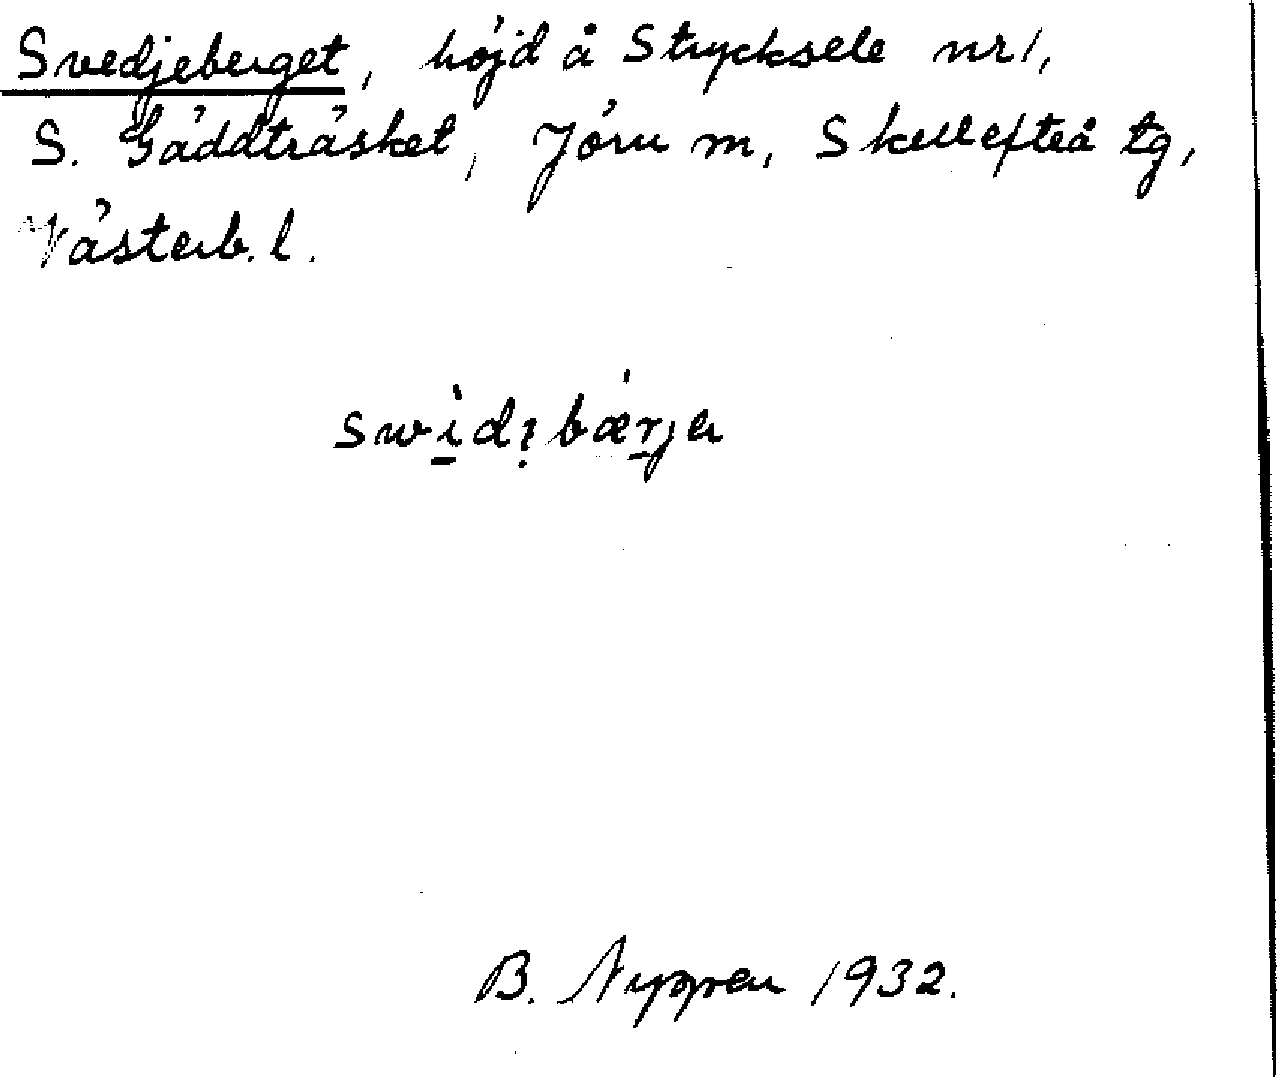 Svedjeberget, höjd å Strycksele nr 1,
S. Gäddträsket, Jörn m, Skellefteå tg,
Västerb. l.
B. Nygren 1932.